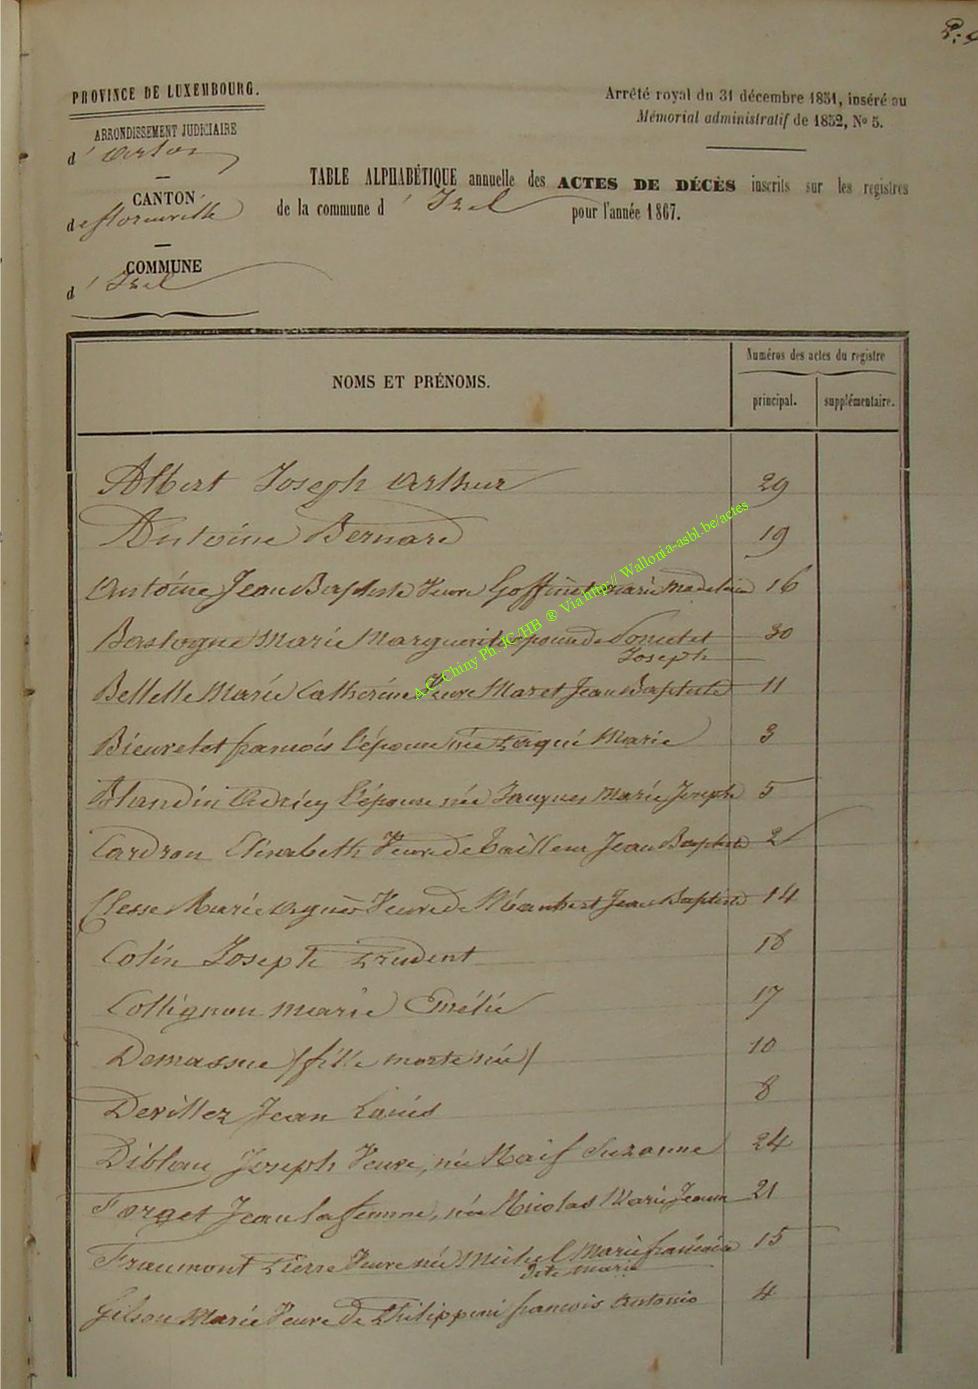 PROVINCE DE LUXEMBOURG.
ARRONDISSEMENT JUDICIAIRE
d' Arlon
CANTON
de florenville
COMMUNE
d' Izel
Arrêté royal du 31 décembre 1851, inséré au
Mémorial administratif de 1852, No 5.
TABLE ALPHABÉTIQUE annuelle des ACTES DE DÉCÈS inscrits sur les registres
de la commune d' Izel pour l'année 1867.
NOMS ET PRÉNOMS.
Numéros des actes du registre
principal. supplémentaire.
Albert Joseph Arthur 29
Antoine Bernard 19
Antoine Jean Baptiste Veuve Goffinet marie Madelaine 16
Bastogne Marie Marguerite épouse de Poncelet 30
Joseph
Bellelle Marie Catherine Veuve Maret Jean Baptiste 11
françois l'épouse née Marie 3
Blandin l'épouse née Jacques Marie Joseph 5
Cardron Elisabeth Veuve de Tailleur Jean Baptiste 2
Clesse Marie Agnès Veuve de Jean Baptiste 14
Colin Joseph Prudent 18
Collignon marie Emélie 17
Demasse (fille morte née) 10
Devillez Jean Louis 8
Diblau Joseph Veuve, née Naif Suzanne 24
Forget Jean la femme, née Nicolas Marie Jeanne 21
Fraumont Pierre Veuve née Michel Marie françoise 15
dite marie
Gilson Marie Veuve de Philippini francois Antonio 4
A.C. Chiny Ph.JC-HB ® Via http:// Wallonia-asbl.be/actes